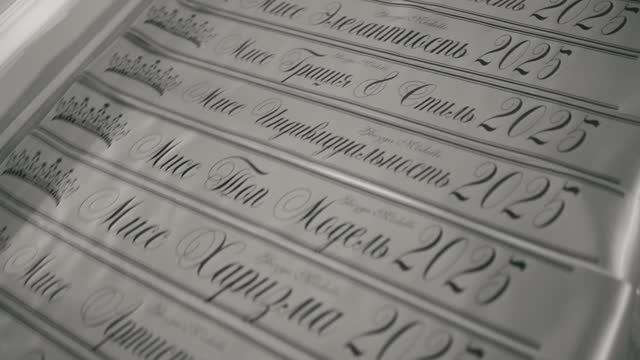 Мисс Элегантность 2025
Мисс Грация & Стиль 2025
Мисс Индивидуальность 2025
Мисс Топ Модель 2025
Мисс Харизма 202
Мисс Артист